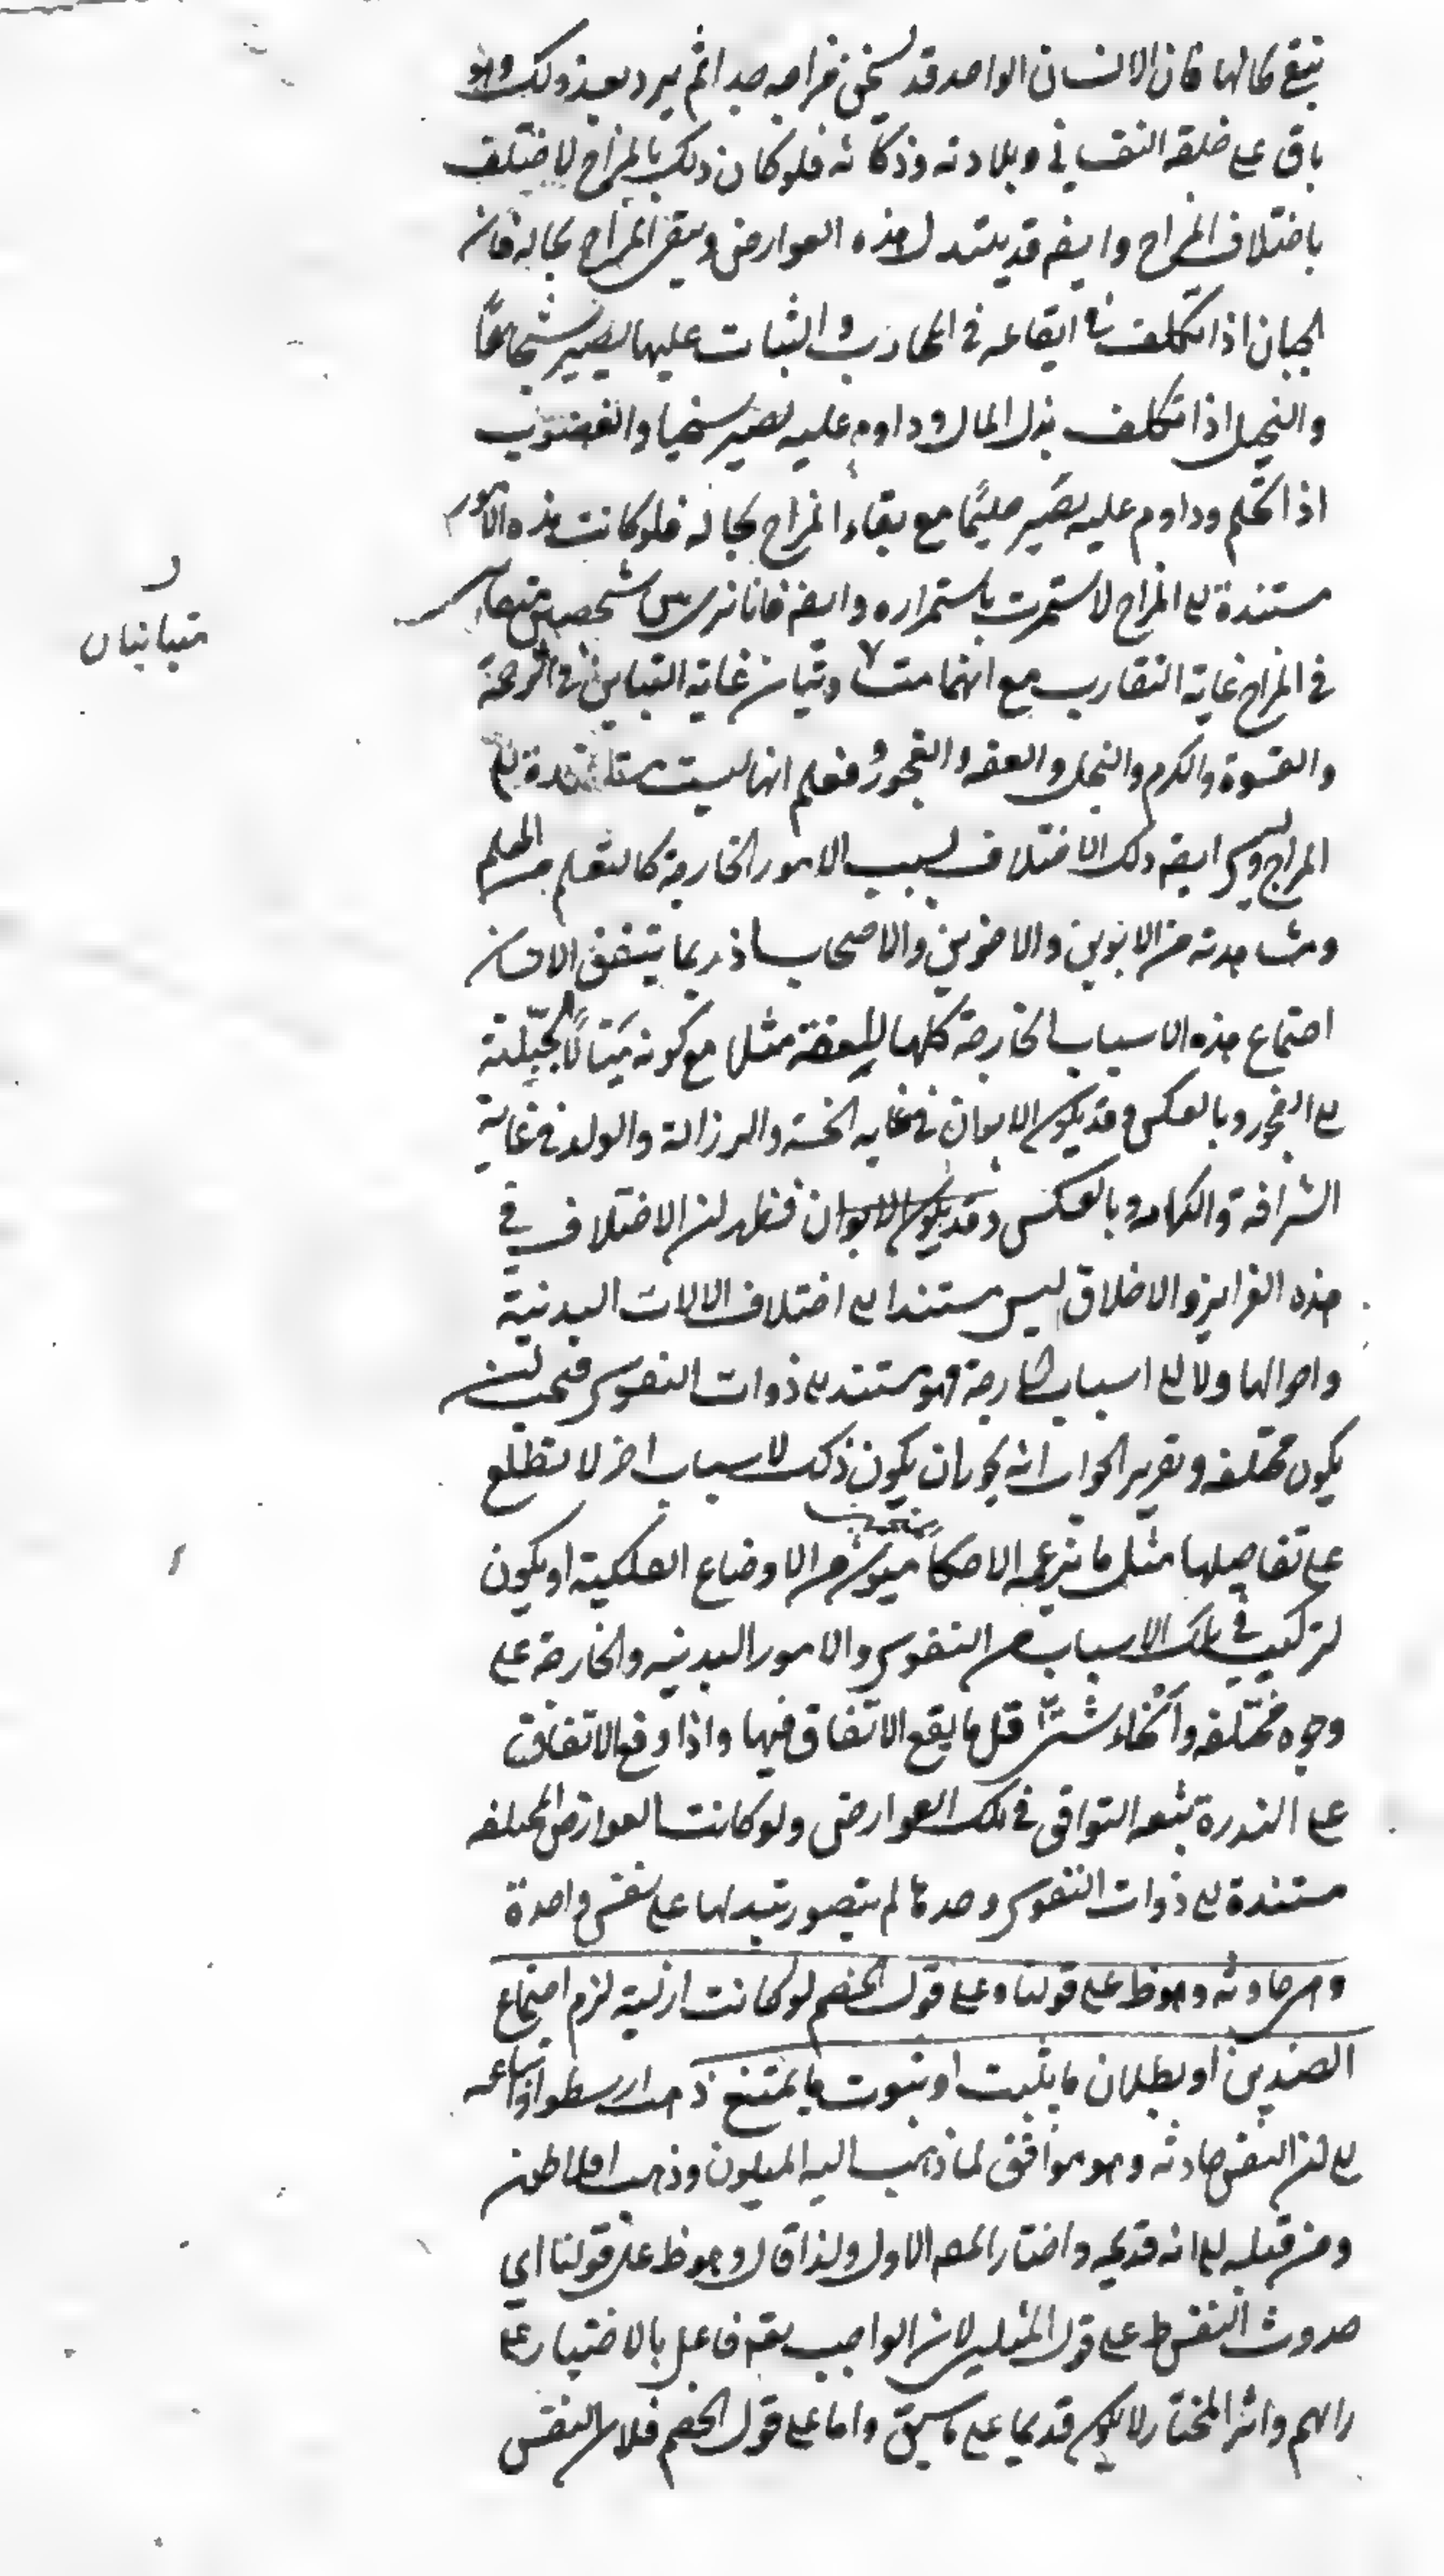 تبقى بحالها فان الانسان الواحد قد يسخن مزاجه جدا ثم يبرد بعد ذلك وهو
باق على خلقه النفساني وبلادته وذكائه فلو كان ذلك بالمزاج لاختلف
باختلاف المزاج وايضه قد يتبدل هذه العوارض ويبقى المزاج بحاله فان
الجبان اذا تكلف ايقاعه في المحارب والثبات عليها يصير شجاعًا
والبخيل اذا تكلف بذل المال وداوم عليه يصير سخيا والغضوب
اذا تحلم وداوم عليه يصير حليمًا مع بقاء المزاج بحاله فلو كانت هذه الامور
مستندة الى المزاج لاستمرت باستمراره وايضه فانا نرى بين شخصين متقا
في المزاج غاية التقارب مع انهما متباينان غاية التباين في الرحمة
متبانيان
والقسوة والكرم والبخل والعفه والفجور فنعلم انها ليست مستندة الى
المزاج وليس ايضه ذلك الاختلاف بسبب الامور الخارجة كالتعلم من المعلم
ومشاهدته من الابوين والاخوين والاصحاب اذ ربما يتفق الانسان
اجتماع هذه الاسباب الخارجة كلها للعفة مثلا مع كونه ميّالًا بجبلّته
الى الفجور وبالعكس وقد يكون الابوان في غايه الخسة والرزالة والولد في غاية
الشرافة والكرامه وبالعكس وقد يكون الابوان فظهر ان الاختلاف في
هذه الغرايز والاخلاق ليس مستندا الى اختلاف الالات البدنية
واحوالها ولا الى اسباب خارجة فهو مستند الى ذوات النفوس فيجب ان
يكون مختلفه وتقرير الجواب انه يجوز ان يكون ذلك لاسباب اخر لا نطلع
على تفاصيلها مثل ما يزعمه الاحكاميون من الاوضاع الفلكية او يكون
لتركيب في تلك الاسباب من النفوس والامور البدنيه والخارجة على
وجوه مختلفه وانحاء شتى قل ما يقع الاتفاق فيها واذا وقع الاتفاق
على الندرة يتبعه التوافق في تلك العوارض ولو كانت العوارض المختلفه
مستندة الى ذوات النفوس وحدها لم يتصور تبدلها على نفس واحدة
وهي حادثه وهو ظ على قولنا وعلى قول الخصم لو كانت ازلية لزم اجتماع
الضدين او بطلان ما يثبت او ثبوت ما يمتنع ذهب ارسطو واتباعه
الى ان النفس حادثه وهو موافق لما ذهب اليه المليون وذهب افلاطون
ومن قبله الى انه قديمه واختار المصه الاول ولذا قال وهو ظ على قولنا اي
حدوث النفس ظ على قول المليين لان الواجب تعه فاعل بالاختيار على
رايهم واثر المختار لا يكون قديما على ما سبق واما على قول الخصم فلان النفس